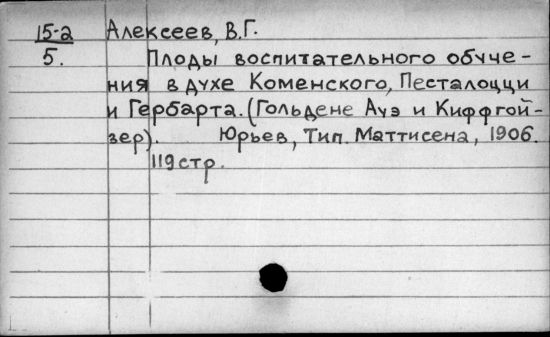 15-2 Алексеев, В.Г.
5. Плоды воспитательного обуче-
ния в духе Коменского, Песталоцци
и Гербарта. (Гольдене Ауэ и Киффгой-
зер). Юрьев, Тип. Маттисена, 1906.
119 стр.